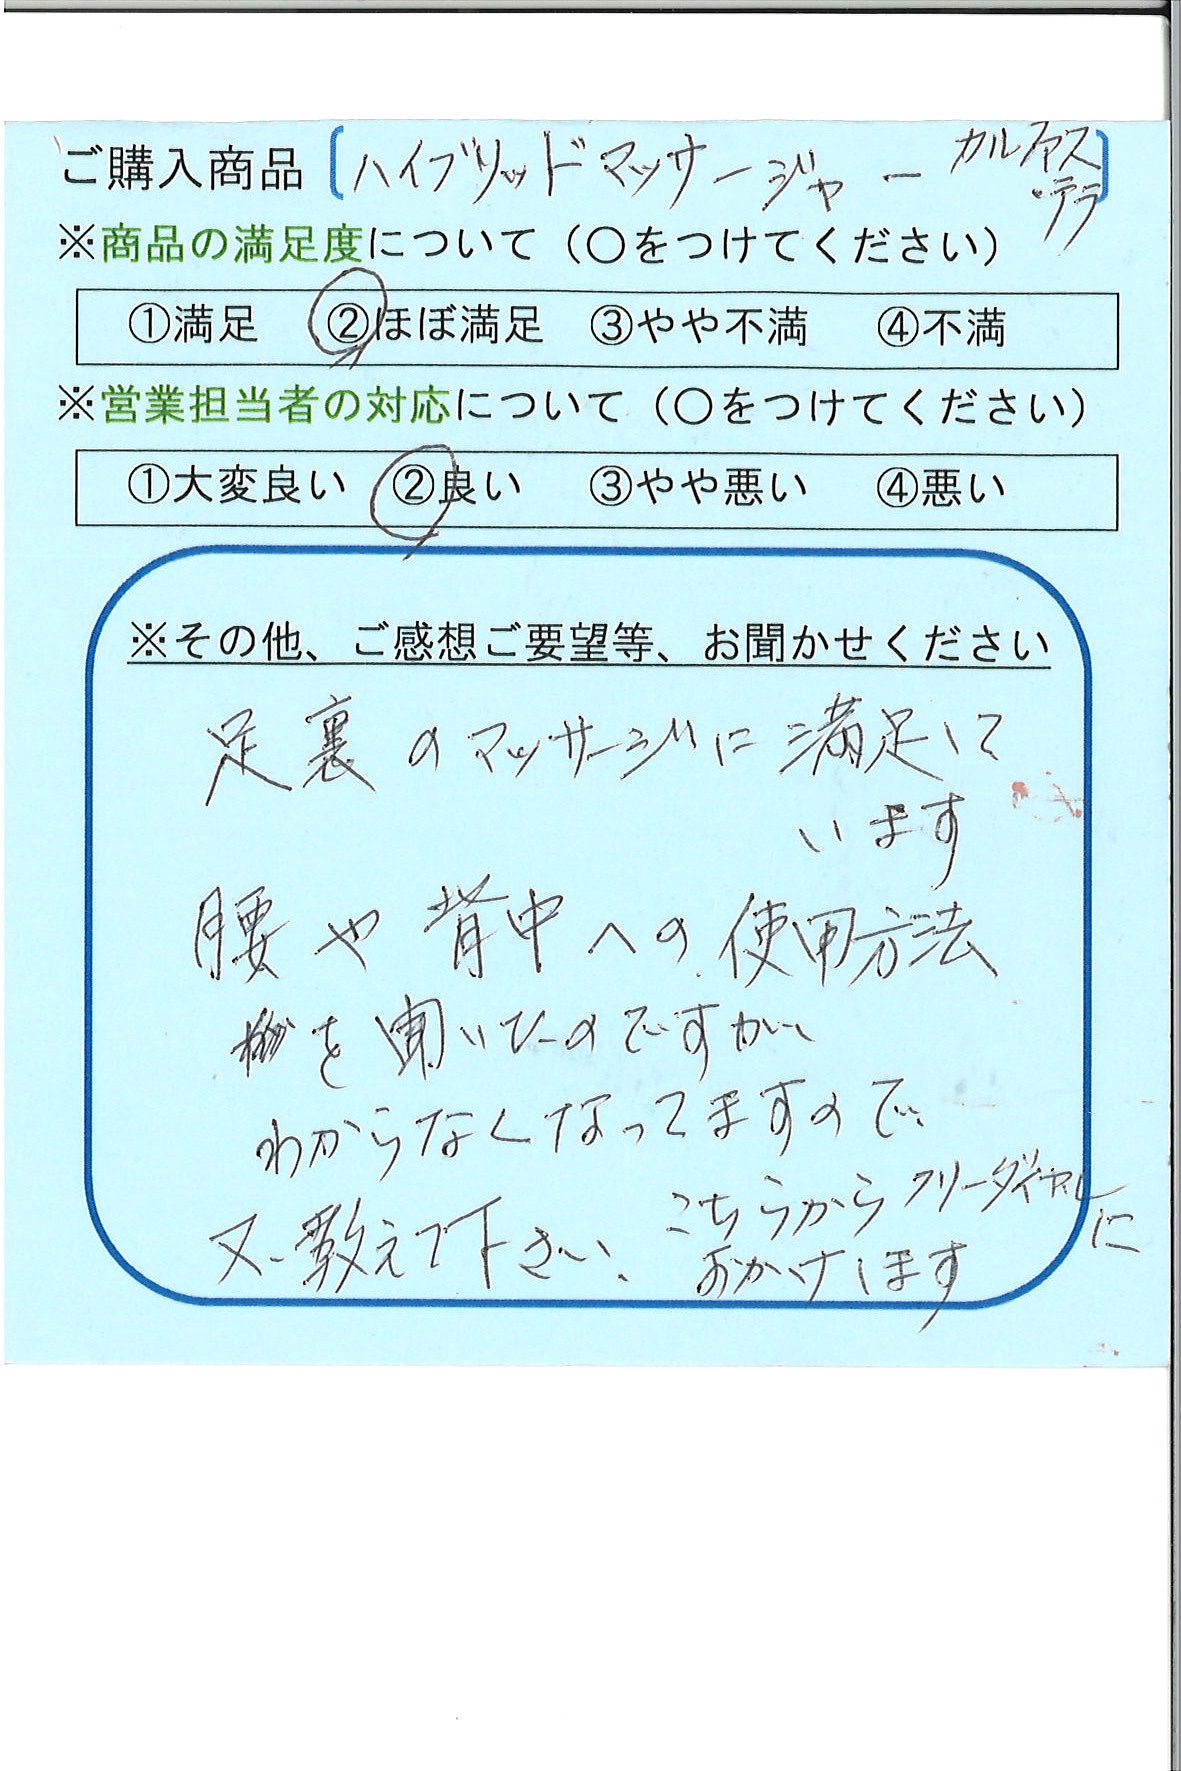 ご購入商品〔ハイブリッドマッサージャー カルファス
・テラ〕
※商品の満足度について（○をつけてください）
①満足 ②ほぼ満足 ③やや不満 ④不満
※営業担当者の対応について（○をつけてください）
①大変良い ②良い ③やや悪い ④悪い
※その他、ご感想ご要望等、お聞かせください
足裏のマッサージに満足して
います
腰や背中への使用方法
を聞いたのですが、
わからなくなってますので、
又、教えて下さい、 こちらからフリーダイヤル
に
おかけします